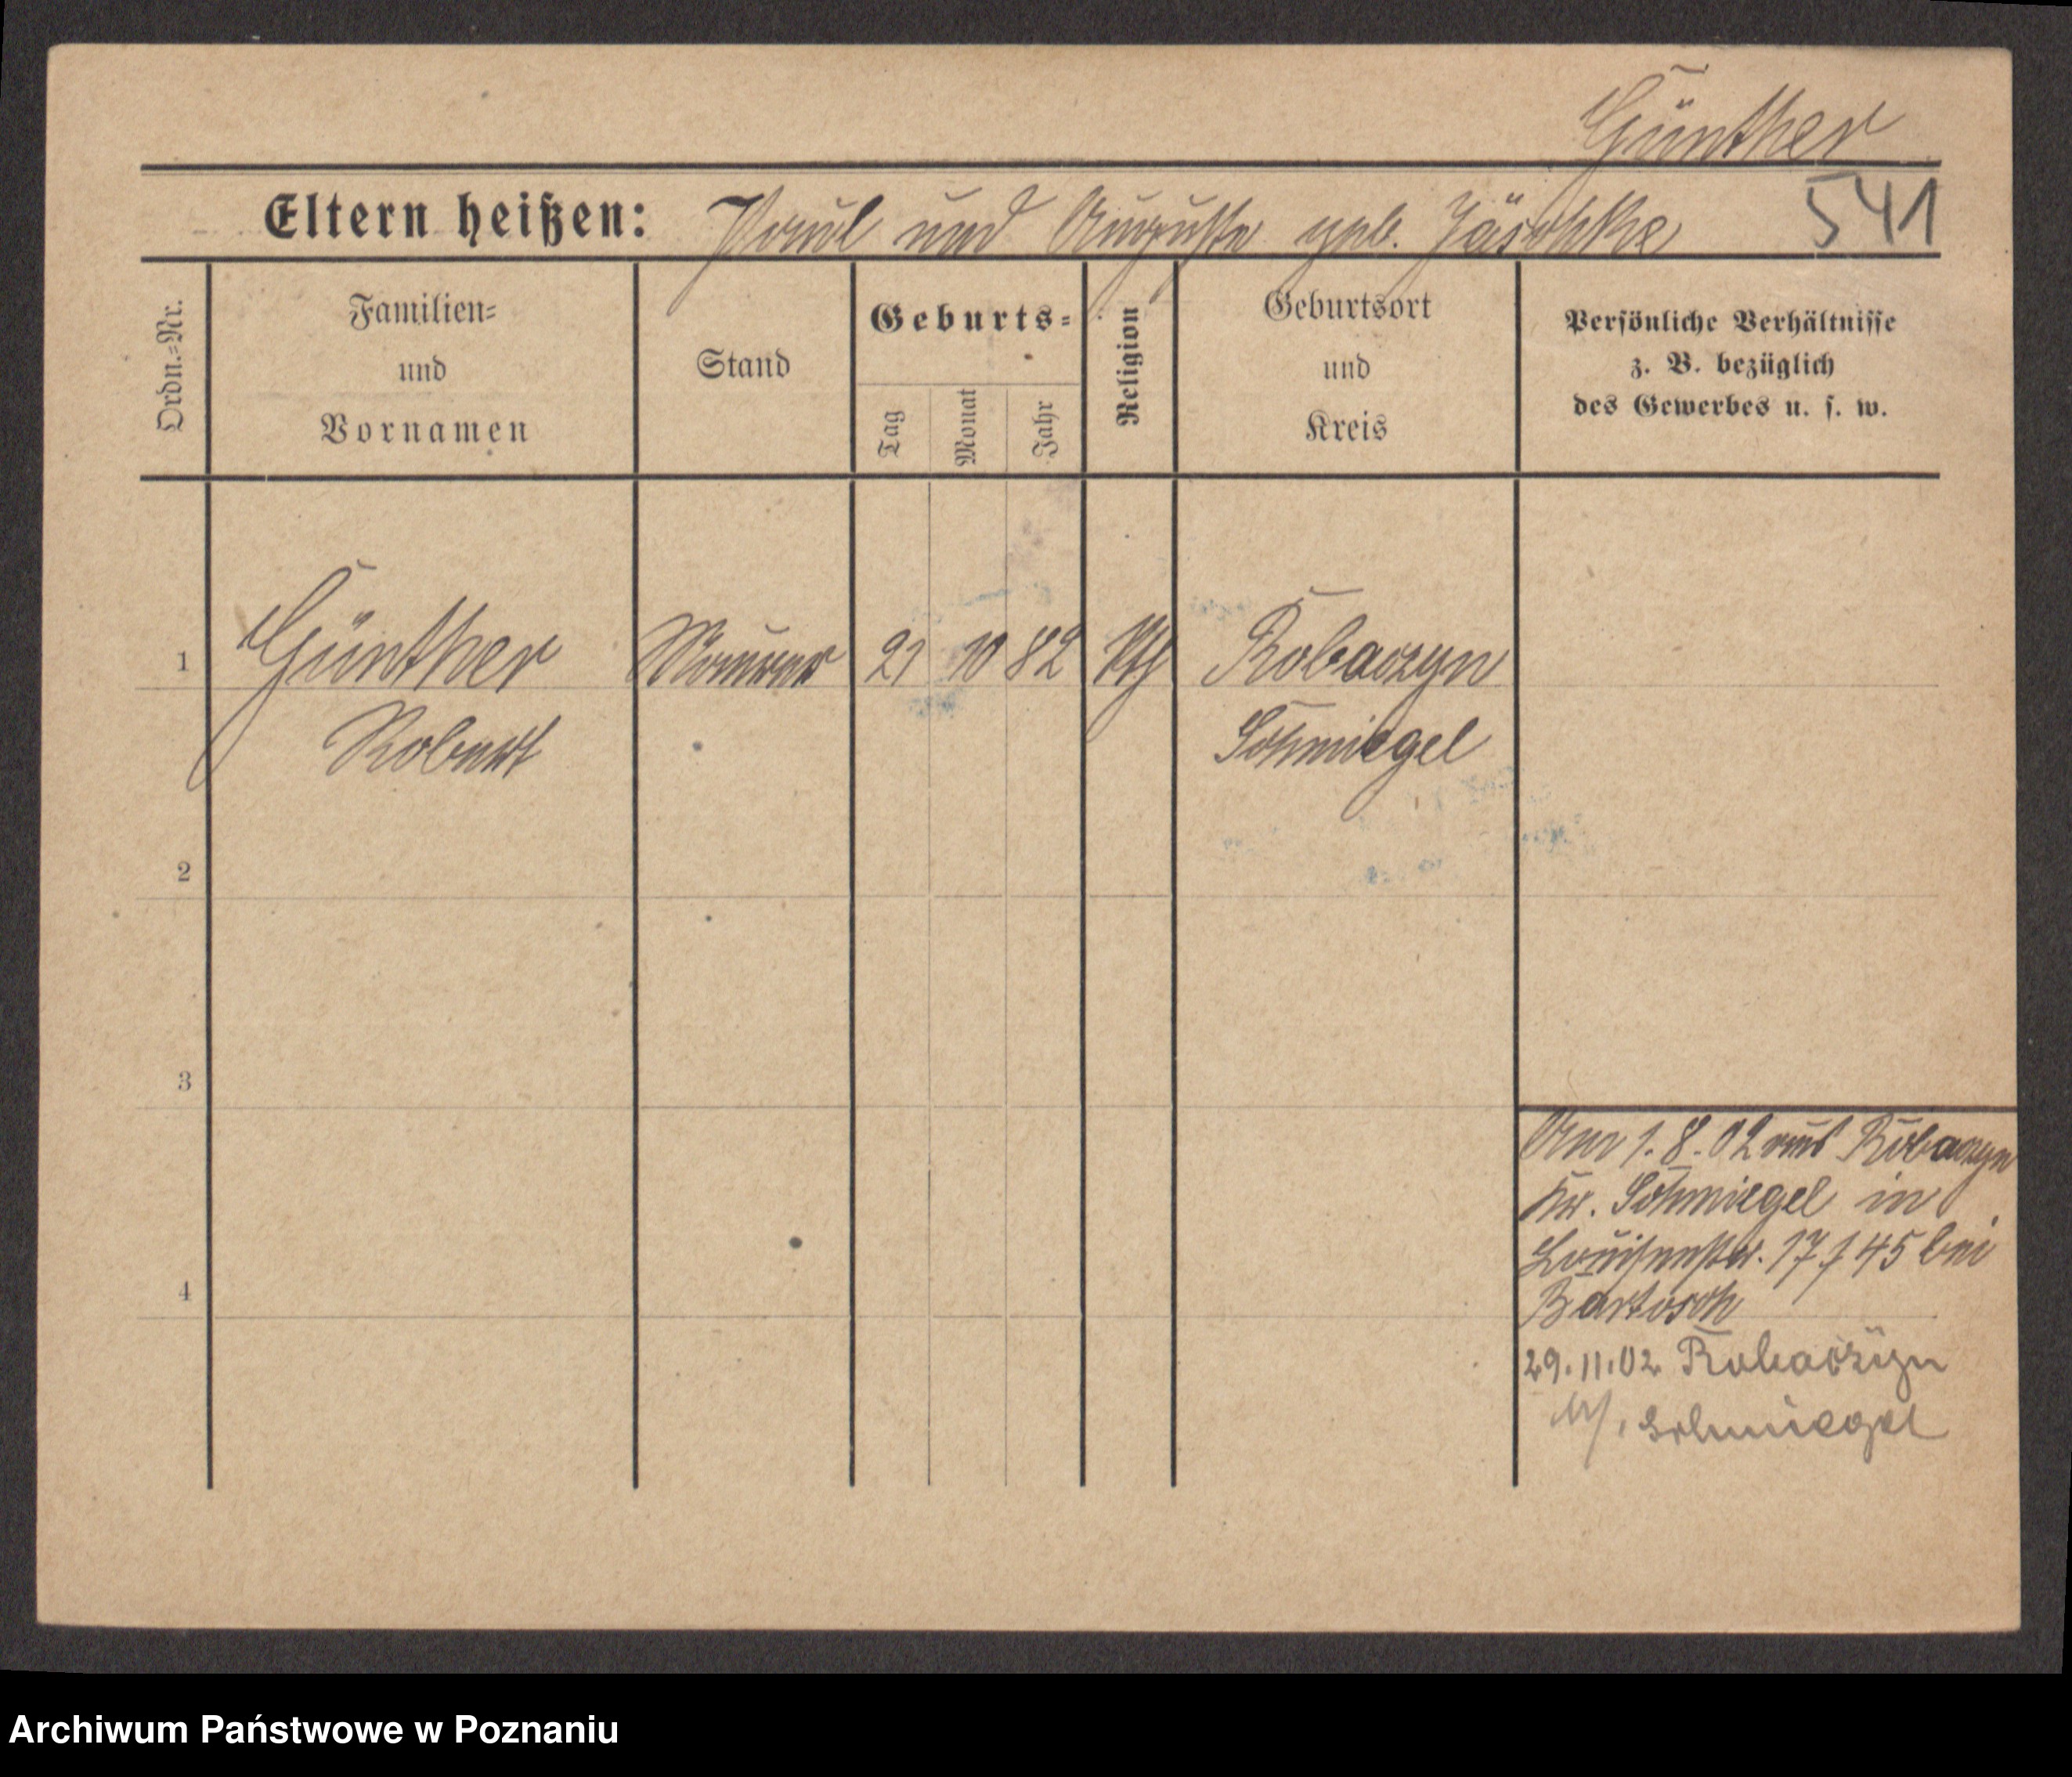 Günther
Eltern heißen: Paul und Auguste geb. Jäschke 541
Ordn.-Nr.
Familien- und Vornamen
Stand
Geburts-
Tag Monat Jahr
Religion
Geburtsort und Kreis
Persönliche Verhältnisse
z. B. bezüglich
des Gewerbes u. s. w.
1 Günther Maurer 21 10 82 kth Robaczyn
Robert Schmiegel
2
3
4
Am 1.8.02 aus Robaczyn
Kr. Schmiegel in
Louisenstr. 17 f 45 bei
Bartosch
29.11.02 Robaczyn
Schmiegel
Archiwum Państwowe w Poznaniu